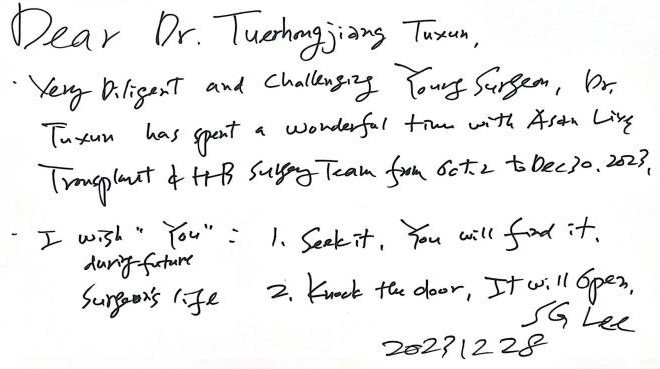 Dear Dr. Tuerhongjiang Tuxun,
· Very Diligent and Challenging Young Surgeon, Dr.
Tuxun has spent a wonderful time with Asan Liver
Transplant & HB Surgery Team from Oct. 2 to Dec 30. 2023.
· I wish "You" : 1. Seek it, You will find it.
during future
Surgeon's life 2. Knock the door, It will open.
SG Lee
20231228